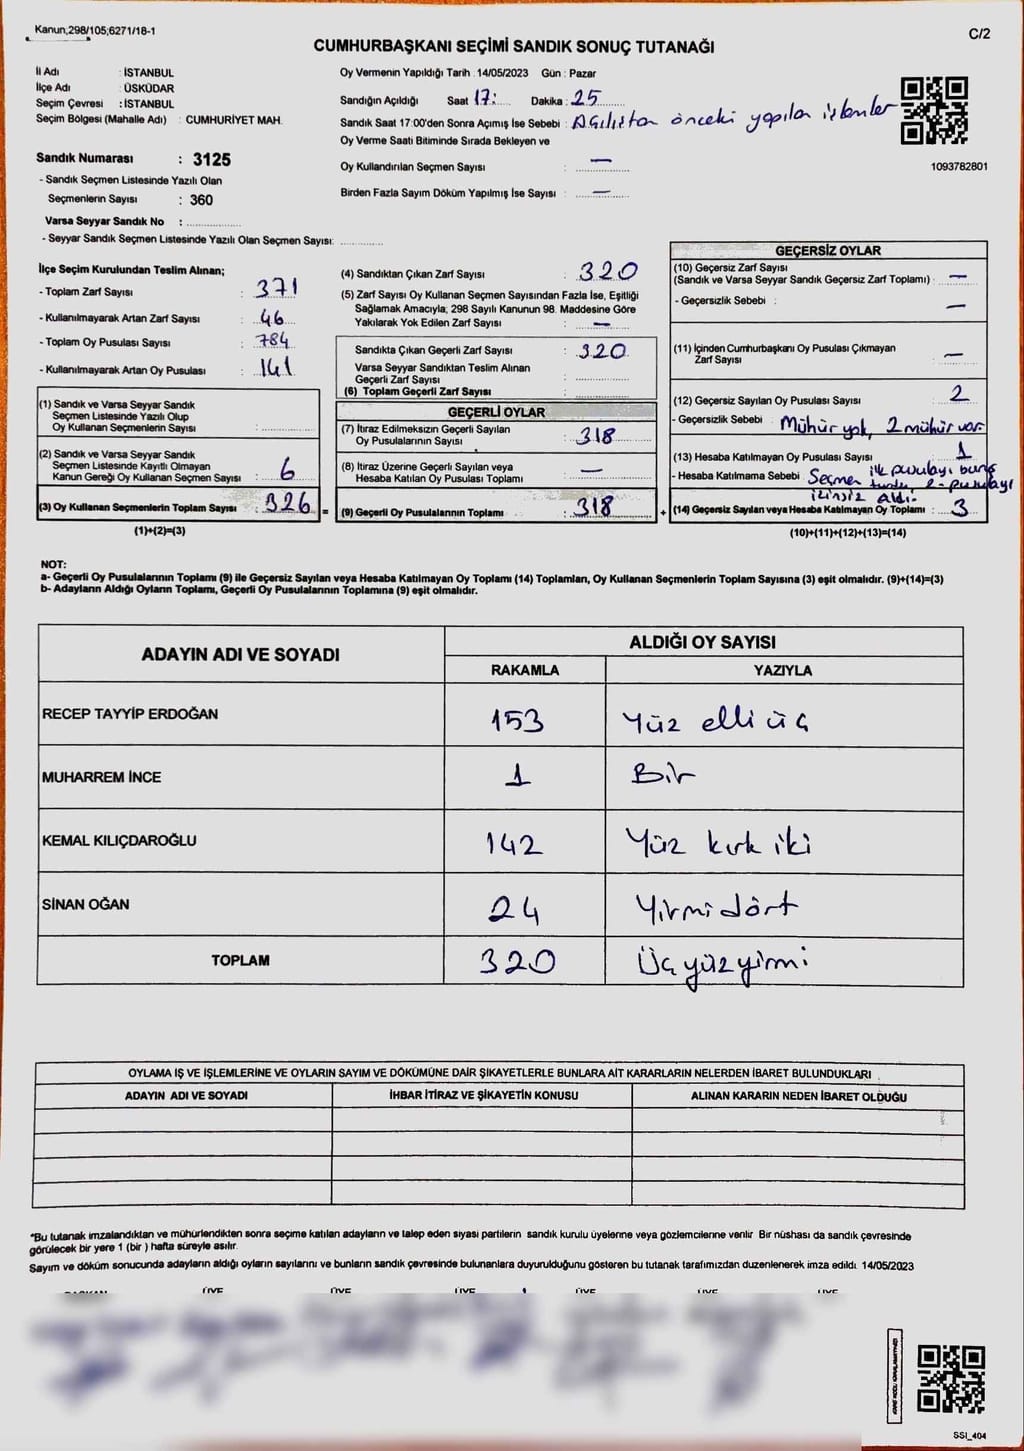 Kanun;298/105;6271/18-1
C/2
CUMHURBAŞKANI SEÇİMİ SANDIK SONUÇ TUTANAĞI
İl Adı : İSTANBUL
İlçe Adı : ÜSKÜDAR
Seçim Çevresi : İSTANBUL
Seçim Bölgesi (Mahalle Adı) : CUMHURİYET MAH.
Sandık Numarası : 3125
- Sandık Seçmen Listesinde Yazılı Olan
Seçmenlerin Sayısı : 360
Varsa Seyyar Sandık No :
- Seyyar Sandık Seçmen Listesinde Yazılı Olan Seçmen Sayısı:
Oy Vermenin Yapıldığı Tarih : 14/05/2023 Gün : Pazar
Sandığın Açıldığı Saat 17: Dakika : 25
Sandık Saat 17:00'den Sonra Açımış İse Sebebi : Açılıştan önceki yapılan işlemler
Oy Verme Saati Bitiminde Sırada Bekleyen ve
Oy Kullandırılan Seçmen Sayısı : —
Birden Fazla Sayım Döküm Yapılmış İse Sayısı : —
1093782801
İlçe Seçim Kurulundan Teslim Alınan;
- Toplam Zarf Sayısı : 371
- Kullanılmayarak Artan Zarf Sayısı : 46
- Toplam Oy Pusulası Sayısı : 784
- Kullanılmayarak Artan Oy Pusulası : 141
(1) Sandık ve Varsa Seyyar Sandık
Seçmen Listesinde Yazılı Olup
Oy Kullanan Seçmenlerin Sayısı :
(2) Sandık ve Varsa Seyyar Sandık
Seçmen Listesinde Kayıtlı Olmayan
Kanun Gereği Oy Kullanan Seçmen Sayısı : 6
(3) Oy Kullanan Seçmenlerin Toplam Sayısı : 326 =
(1)+(2)=(3)
(4) Sandıktan Çıkan Zarf Sayısı : 320
(5) Zarf Sayısı Oy Kullanan Seçmen Sayısından Fazla İse, Eşitliği
Sağlamak Amacıyla; 298 Sayılı Kanunun 98. Maddesine Göre
Yakılarak Yok Edilen Zarf Sayısı : —
Sandıkta Çıkan Geçerli Zarf Sayısı : 320
Varsa Seyyar Sandıktan Teslim Alınan
Geçerli Zarf Sayısı :
(6) Toplam Geçerli Zarf Sayısı :
GEÇERLİ OYLAR
(7) İtiraz Edilmeksizin Geçerli Sayılan
Oy Pusulalarının Sayısı : 318
(8) İtiraz Üzerine Geçerli Sayılan veya
Hesaba Katılan Oy Pusulası Toplamı : —
(9) Geçerli Oy Pusulalarının Toplamı : 318 +
GEÇERSİZ OYLAR
(10) Geçersiz Zarf Sayısı
(Sandık ve Varsa Seyyar Sandık Geçersiz Zarf Toplamı) : —
- Geçersizlik Sebebi : —
(11) İçinden Cumhurbaşkanı Oy Pusulası Çıkmayan
Zarf Sayısı : —
(12) Geçersiz Sayılan Oy Pusulası Sayısı : 2
- Geçersizlik Sebebi : Mühür yok, 2 mühür var
(13) Hesaba Katılmayan Oy Pusulası Sayısı : 1
- Hesaba Katılmama Sebebi : Seçmen ilk pusulayı buruşturdu, 2. pusulayı
izinsiz aldı.
(14) Geçersiz Sayılan veya Hesaba Katılmayan Oy Toplamı : 3
(10)+(11)+(12)+(13)=(14)
NOT:
a- Geçerli Oy Pusulalarının Toplamı (9) ile Geçersiz Sayılan veya Hesaba Katılmayan Oy Toplamı (14) Toplamları, Oy Kullanan Seçmenlerin Toplam Sayısına (3) eşit olmalıdır. (9)+(14)=(3)
b- Adayların Aldığı Oyların Toplamı, Geçerli Oy Pusulalarının Toplamına (9) eşit olmalıdır.
ADAYIN ADI VE SOYADI ALDIĞI OY SAYISI
RAKAMLA YAZIYLA
RECEP TAYYİP ERDOĞAN 153 Yüz elli üç
MUHARREM İNCE 1 Bir
KEMAL KILIÇDAROĞLU 142 Yüz kırk iki
SİNAN OĞAN 24 Yirmi dört
TOPLAM 320 Üç yüz yirmi
OYLAMA İŞ VE İŞLEMLERİNE VE OYLARIN SAYIM VE DÖKÜMÜNE DAİR ŞİKAYETLERLE BUNLARA AİT KARARLARIN NELERDEN İBARET BULUNDUKLARI
ADAYIN ADI VE SOYADI İHBAR İTİRAZ VE ŞİKAYETİN KONUSU ALINAN KARARIN NEDEN İBARET OLDUĞU
*Bu tutanak imzalandıktan ve mühürlendikten sonra seçime katılan adayların ve talep eden siyasi partilerin sandık kurulu üyelerine veya gözlemcilerine verilir. Bir nüshası da sandık çevresinde
görülecek bir yere 1 (bir ) hafta süreyle asılır.
Sayım ve döküm sonucunda adayların aldığı oyların sayılarını ve bunların sandık çevresinde bulunanlara duyurulduğunu gösteren bu tutanak tarafımızdan düzenlenerek imza edildi. 14/05/2023
BAŞKAN ÜYE ÜYE ÜYE ÜYE ÜYE ÜYE
SSI_404